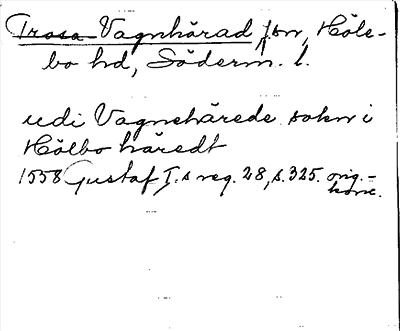 Trosa-Vagnhärad sn, Höle-
bo hd, Söderm. l.
udi Vagnehärede sokn i
Hölbo häredt
1558 Gustaf I.s reg. 28, s. 325. orig.-
konc.